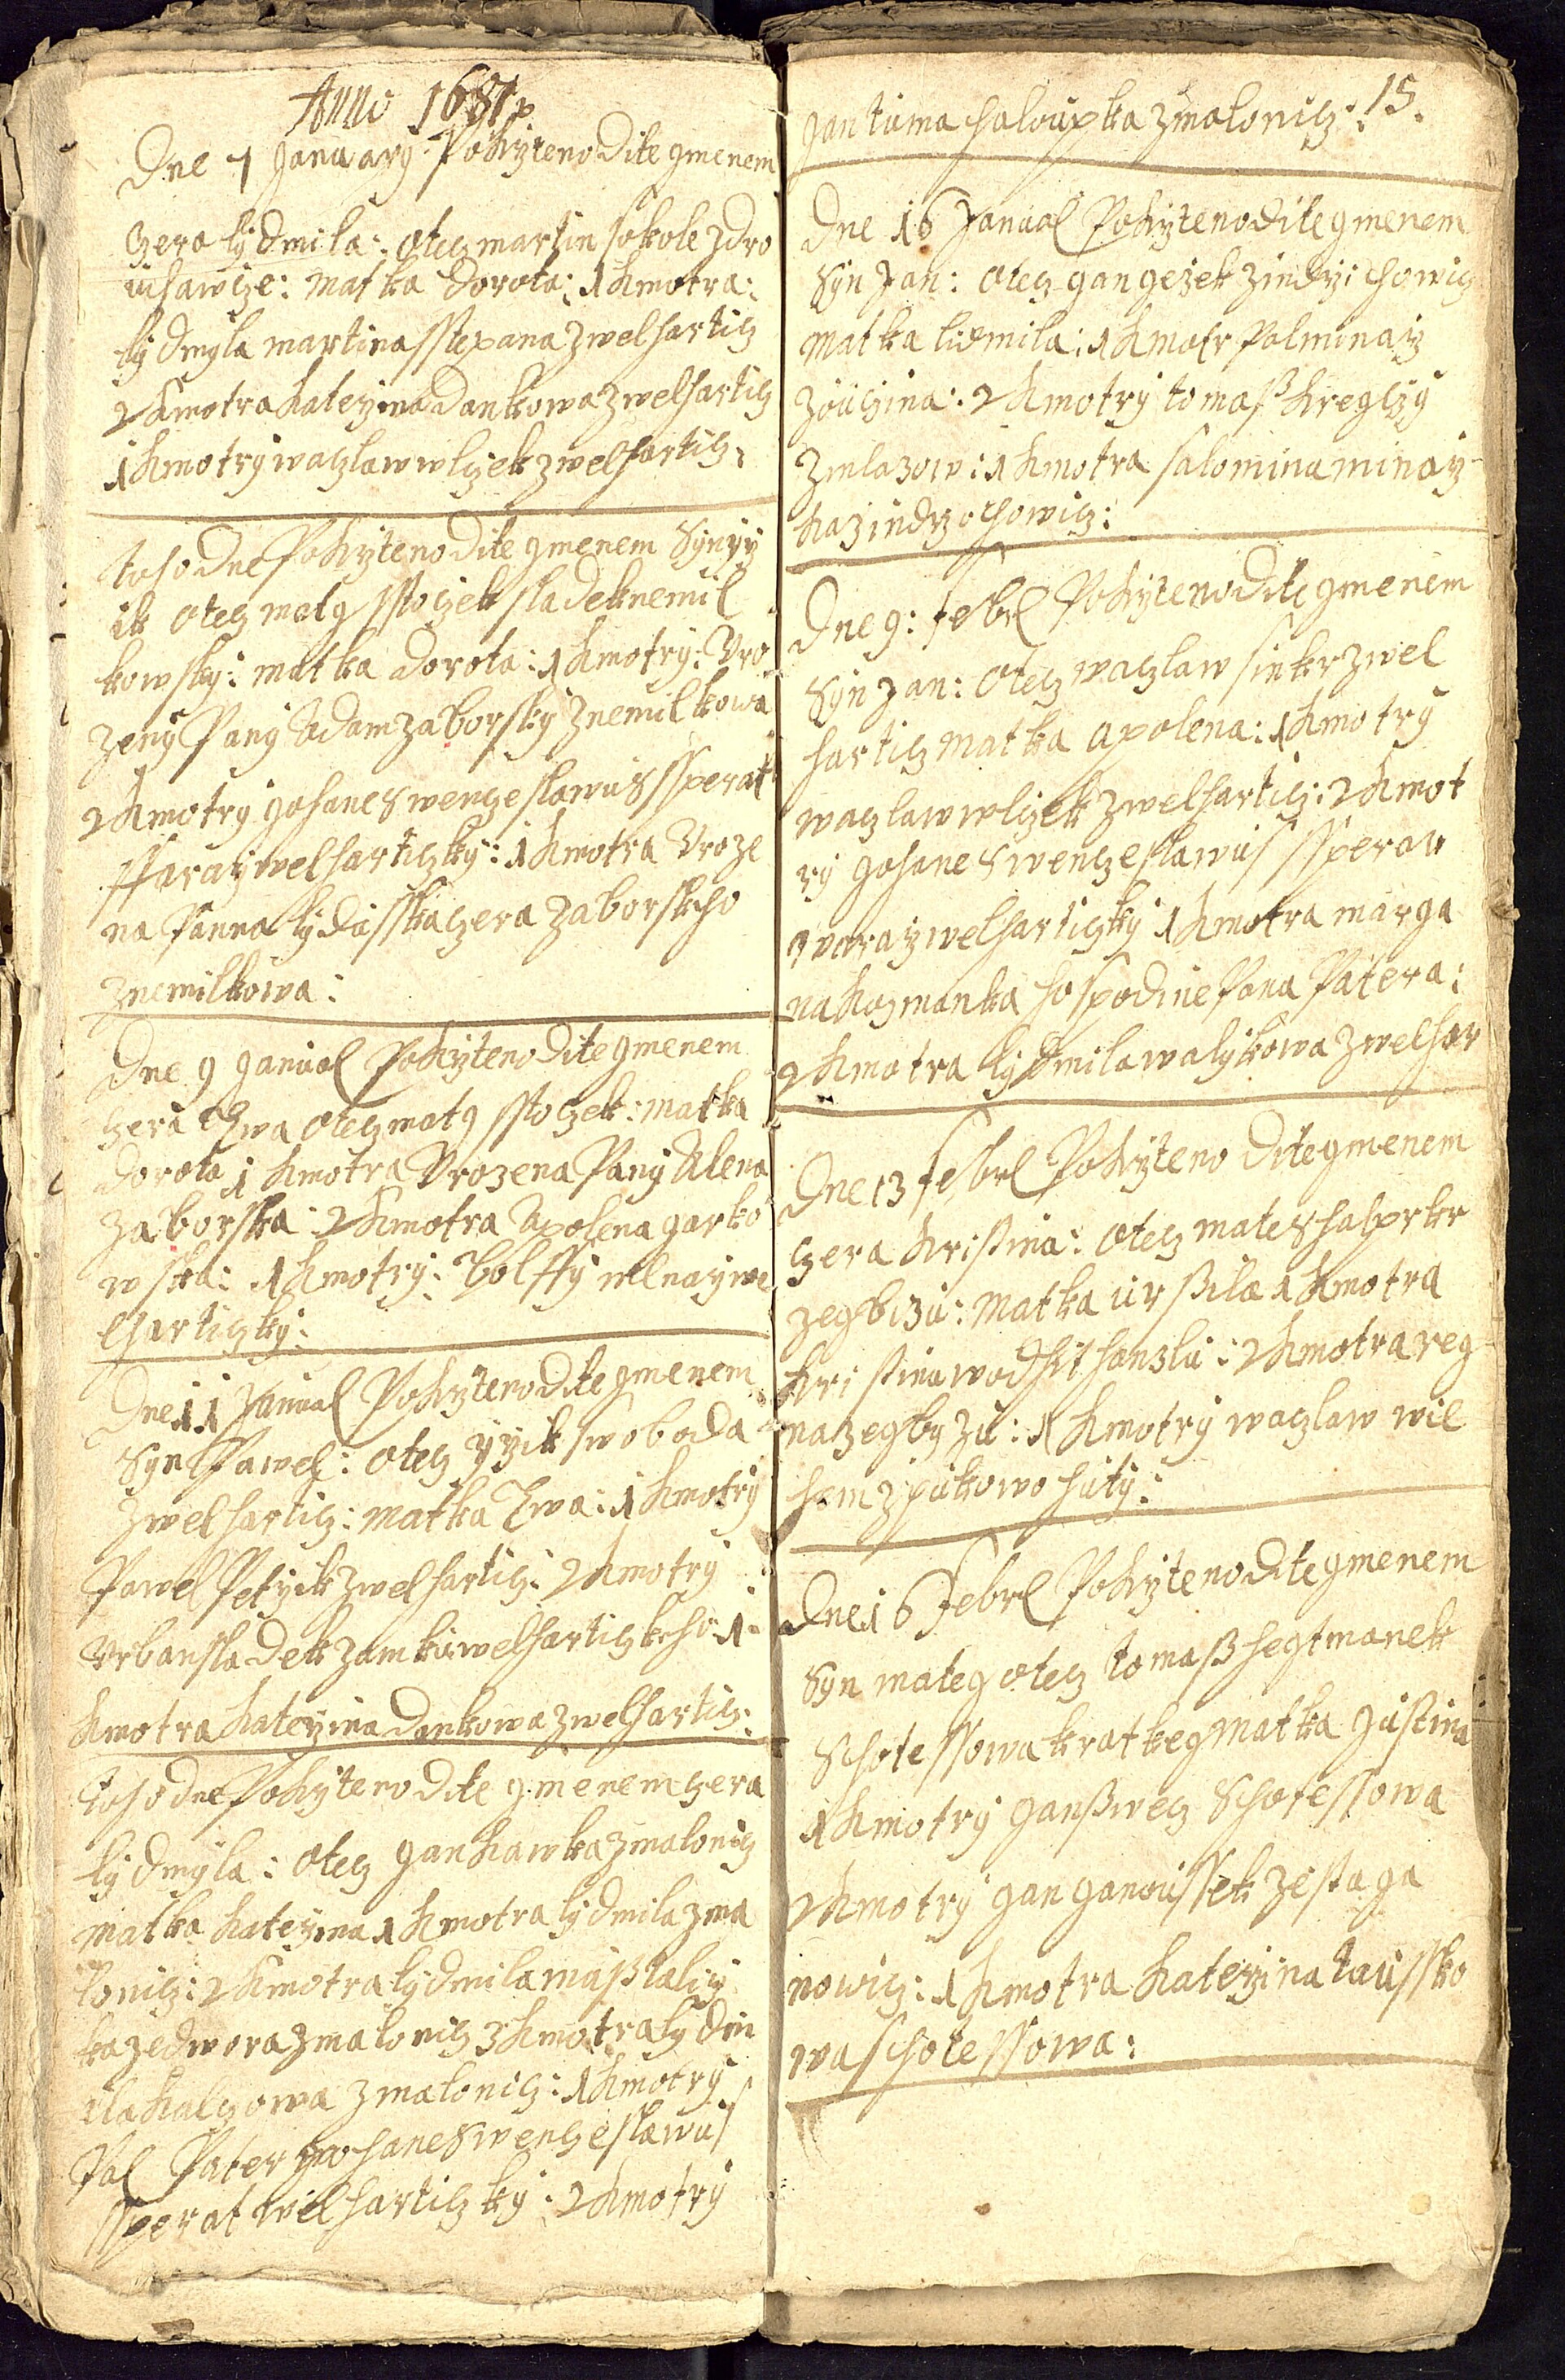 Anno 1681
Dne 1 Januarÿ Pokrzteno Dite gmenem
Czera lÿdmila: otecz martin sokole z dro
uhawcze: matka Dorota: 1 kmotra:
lÿdmÿla martina sstepana z welharticz
2 kmotra katerzina dankowa z welharticz
1 kmotrÿ waczlaw wlczek z welharticz:
toho dne Pokrzteno dite gmenem Sÿn yrz
ik otecz matg sstoczek sladek nemil
kowskÿ: matka dorota: 1 kmotrÿ: Vro
zenÿ Panÿ Adam zaborskÿ z nemilkowa
2 kmotrÿ gohanes wenczeslawus sperat
ffararz welharticzkÿ: 1 kmotra Vroze
na Panna lÿdusska czera zaborskeho
z nemilkowa:
Dne 9 ganual Pokrzteno Dite gmenem
czera Ewa otecz matg sstoczek: matka
dorota 1 kmotra Vrozena Panÿ Alena
zaborska: 2 kmotra Apolena garko
wska: 1 kmotrÿ: bolffÿ mlnarz we
lharticzkÿ:
Dne 11 Janual Pokrzteno dite gmenem
Sÿn Pawel: otecz yrzik swoboda
z welharticz: matka Ewa: 1 kmotrÿ
Pawel Petrzik z welharticz: 2 kmotrÿ
Vrban sladek zamku welharticzkeho 1
kmotra katerzina dankowa z welharticz:
toho dne Pokrzteno dite gmenem czera
lÿdmÿla: otecz gan kawka z malonicz
matka katerzina 1 kmotra lÿdmila z ma
lonicz: 2 kmotra lÿdmila
ka ze dwora z malonicz 3 kmotra lÿdm
ila kalczowa z malonicz: 1 kmotrÿ
Pal Pater gohanes wenczeslawus
sperat welharticzkÿ: 2 kmotrÿ
15.
gan tuma haloupka z malonicz:
Dne 16 Janual Pokrzteno dite gmenem
Sÿn Jan: otecz gan gezek z indrzichowicz
matka lidmila: 1 kmotr Pal minarz
z auczina: 2 kmotrÿ tomaß kregczÿ
z mlazow: 1 kmotra salomina minarz
ka z indrzochowicz:
Dne 9: febrl Pokrzteno dite gmenem
Sÿn Jan: otecz waczlaw sinkr z wel
harticz matka apolena: 1 kmotrÿ
waczlaw wlczek z welharticz: 2 kmot
rÿ gohanes wenczeslawus sperat
ffararz welharticzkÿ 1 kmotra marga
na kozmanka hospodine Pana Patera:
2 kmotra lÿdmila walÿkowa z welhar
Dne 13 febrl Pokrzteno dite gmenem
czera kristina: otecz mates halprkr
z egbizu: matka urßila 1 kmotra
kristina wodhit hanzlu: 2 kmotra reg
na z egbyzu: 1 kmotrÿ waczlaw wil
hem z pukowo hutÿ:
Dne 16 febrl Pokrzteno dite gmenem
Sÿn mateg otecz tomaß hegtmanek
Schotessowa kratkeg matka Justina
1 kmotrÿ gan ßwecz Schotessowa
2 kmotrÿ gan ganoussek ze staga
nowicz: 1 kmotra katerzina taussko
wa schotessowa: